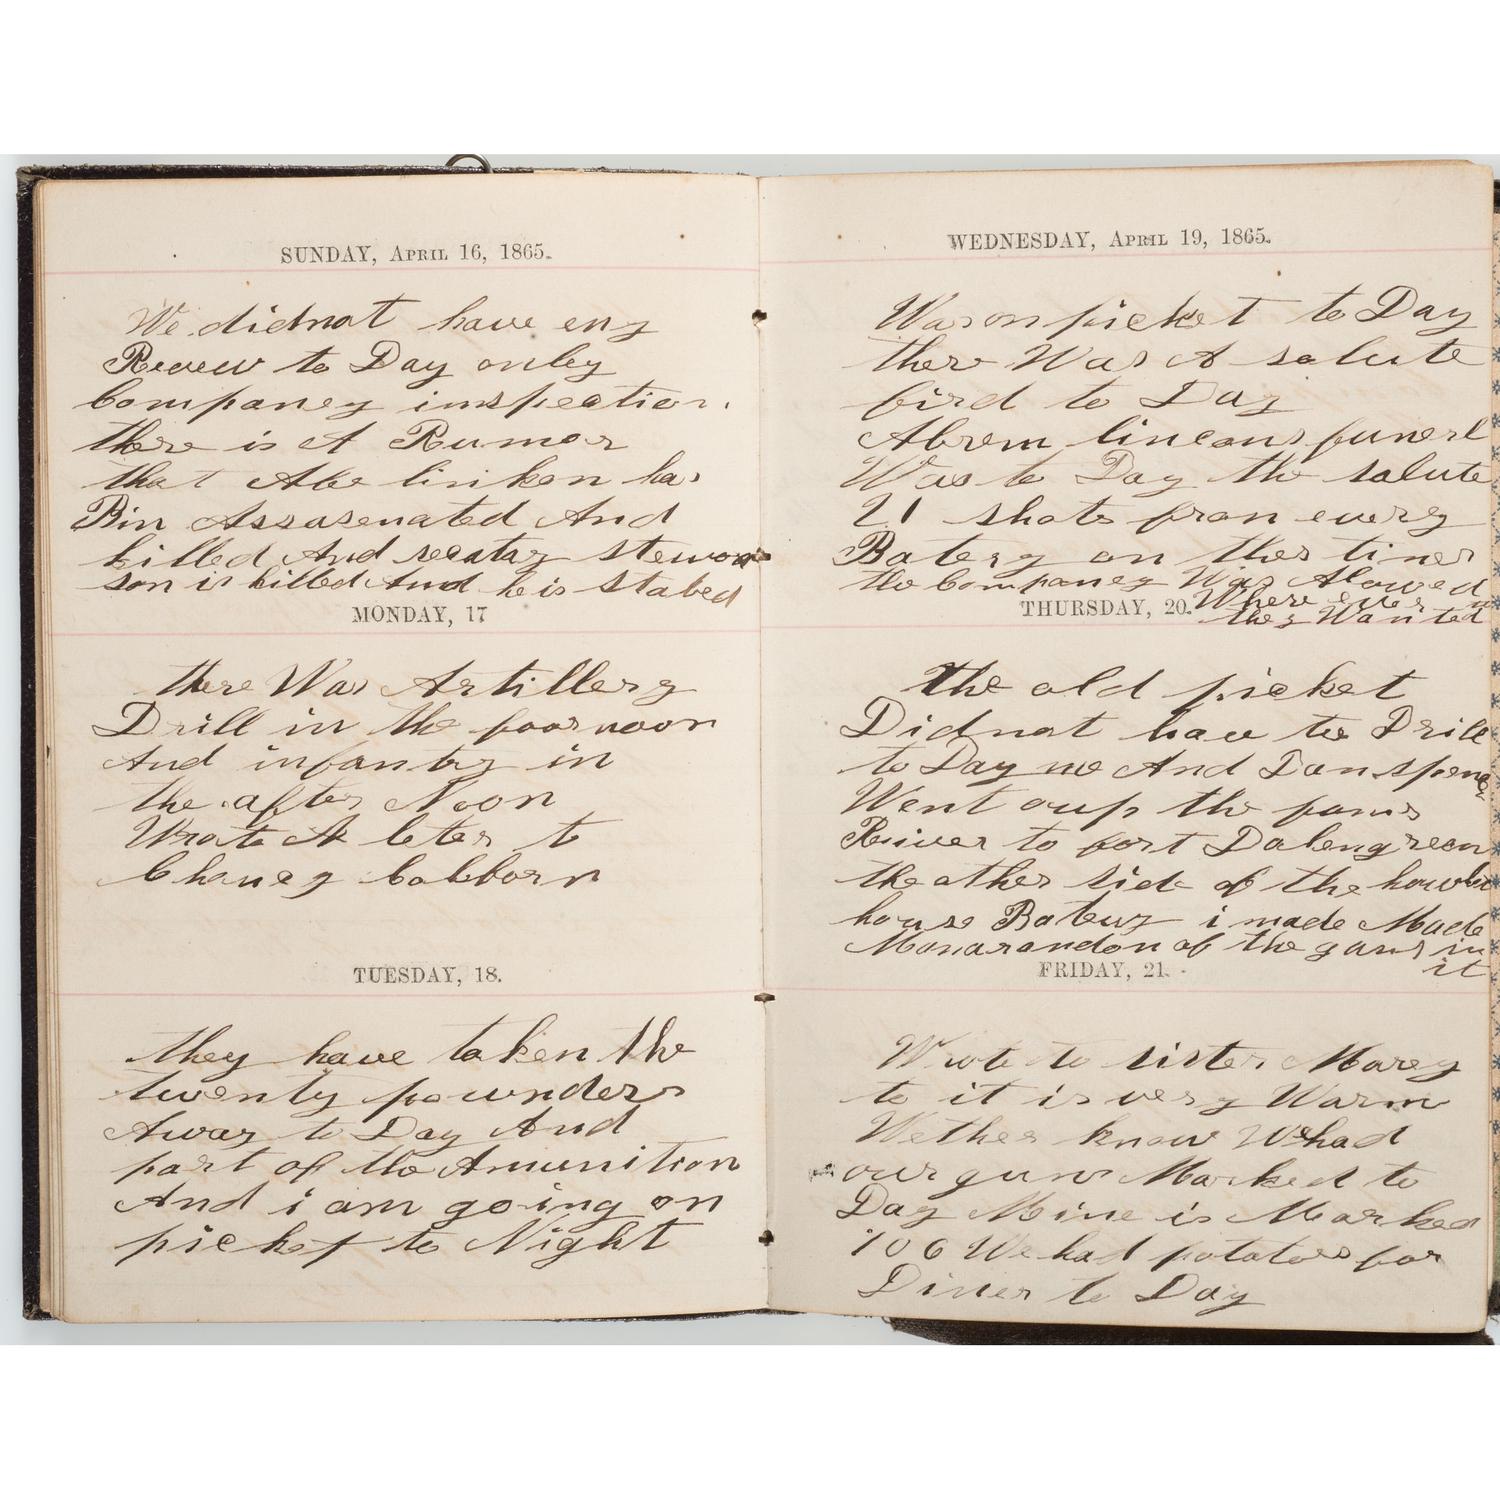 SUNDAY, APRIL 16, 1865.
We didnot have eny
Reveiw to Day onley
Companey imspection.
there is A Rumor
that Abe linken has
Bin Assasenated And
killed And secatary steword
son is killed And he is stabed
MONDAY, 17
there Was Artillery
Drill in the foornoon
And infantry in
the after Noon
Wrote A leter to
Chaney Colborn
TUESDAY, 18.
they have taken the
twenty pounders
Away to Day And
part of the Amunition
And i am going on
picket to Night
WEDNESDAY, APRIL 19, 1865.
Was on picket to Day
there Was A salute
fird to Day
Abrem lincons funerl
Was to Day the salute
21 shots from every
Batery on ther liner
the Companey Was Alowed
Where ever
they Wanted
THURSDAY, 20.
the old picket
Didnot have to Drill
to Day me And Dan
Went oup the
River to fort Dalengreen
the other side of the
house Batery i made Made
of the guns in
it
FRIDAY, 21.
Wrote to sister Marey
to it is very Warm
Wether know We had
our guns Marked to
Day Mine is Marked
106 We had potatoes for
Diner to Day